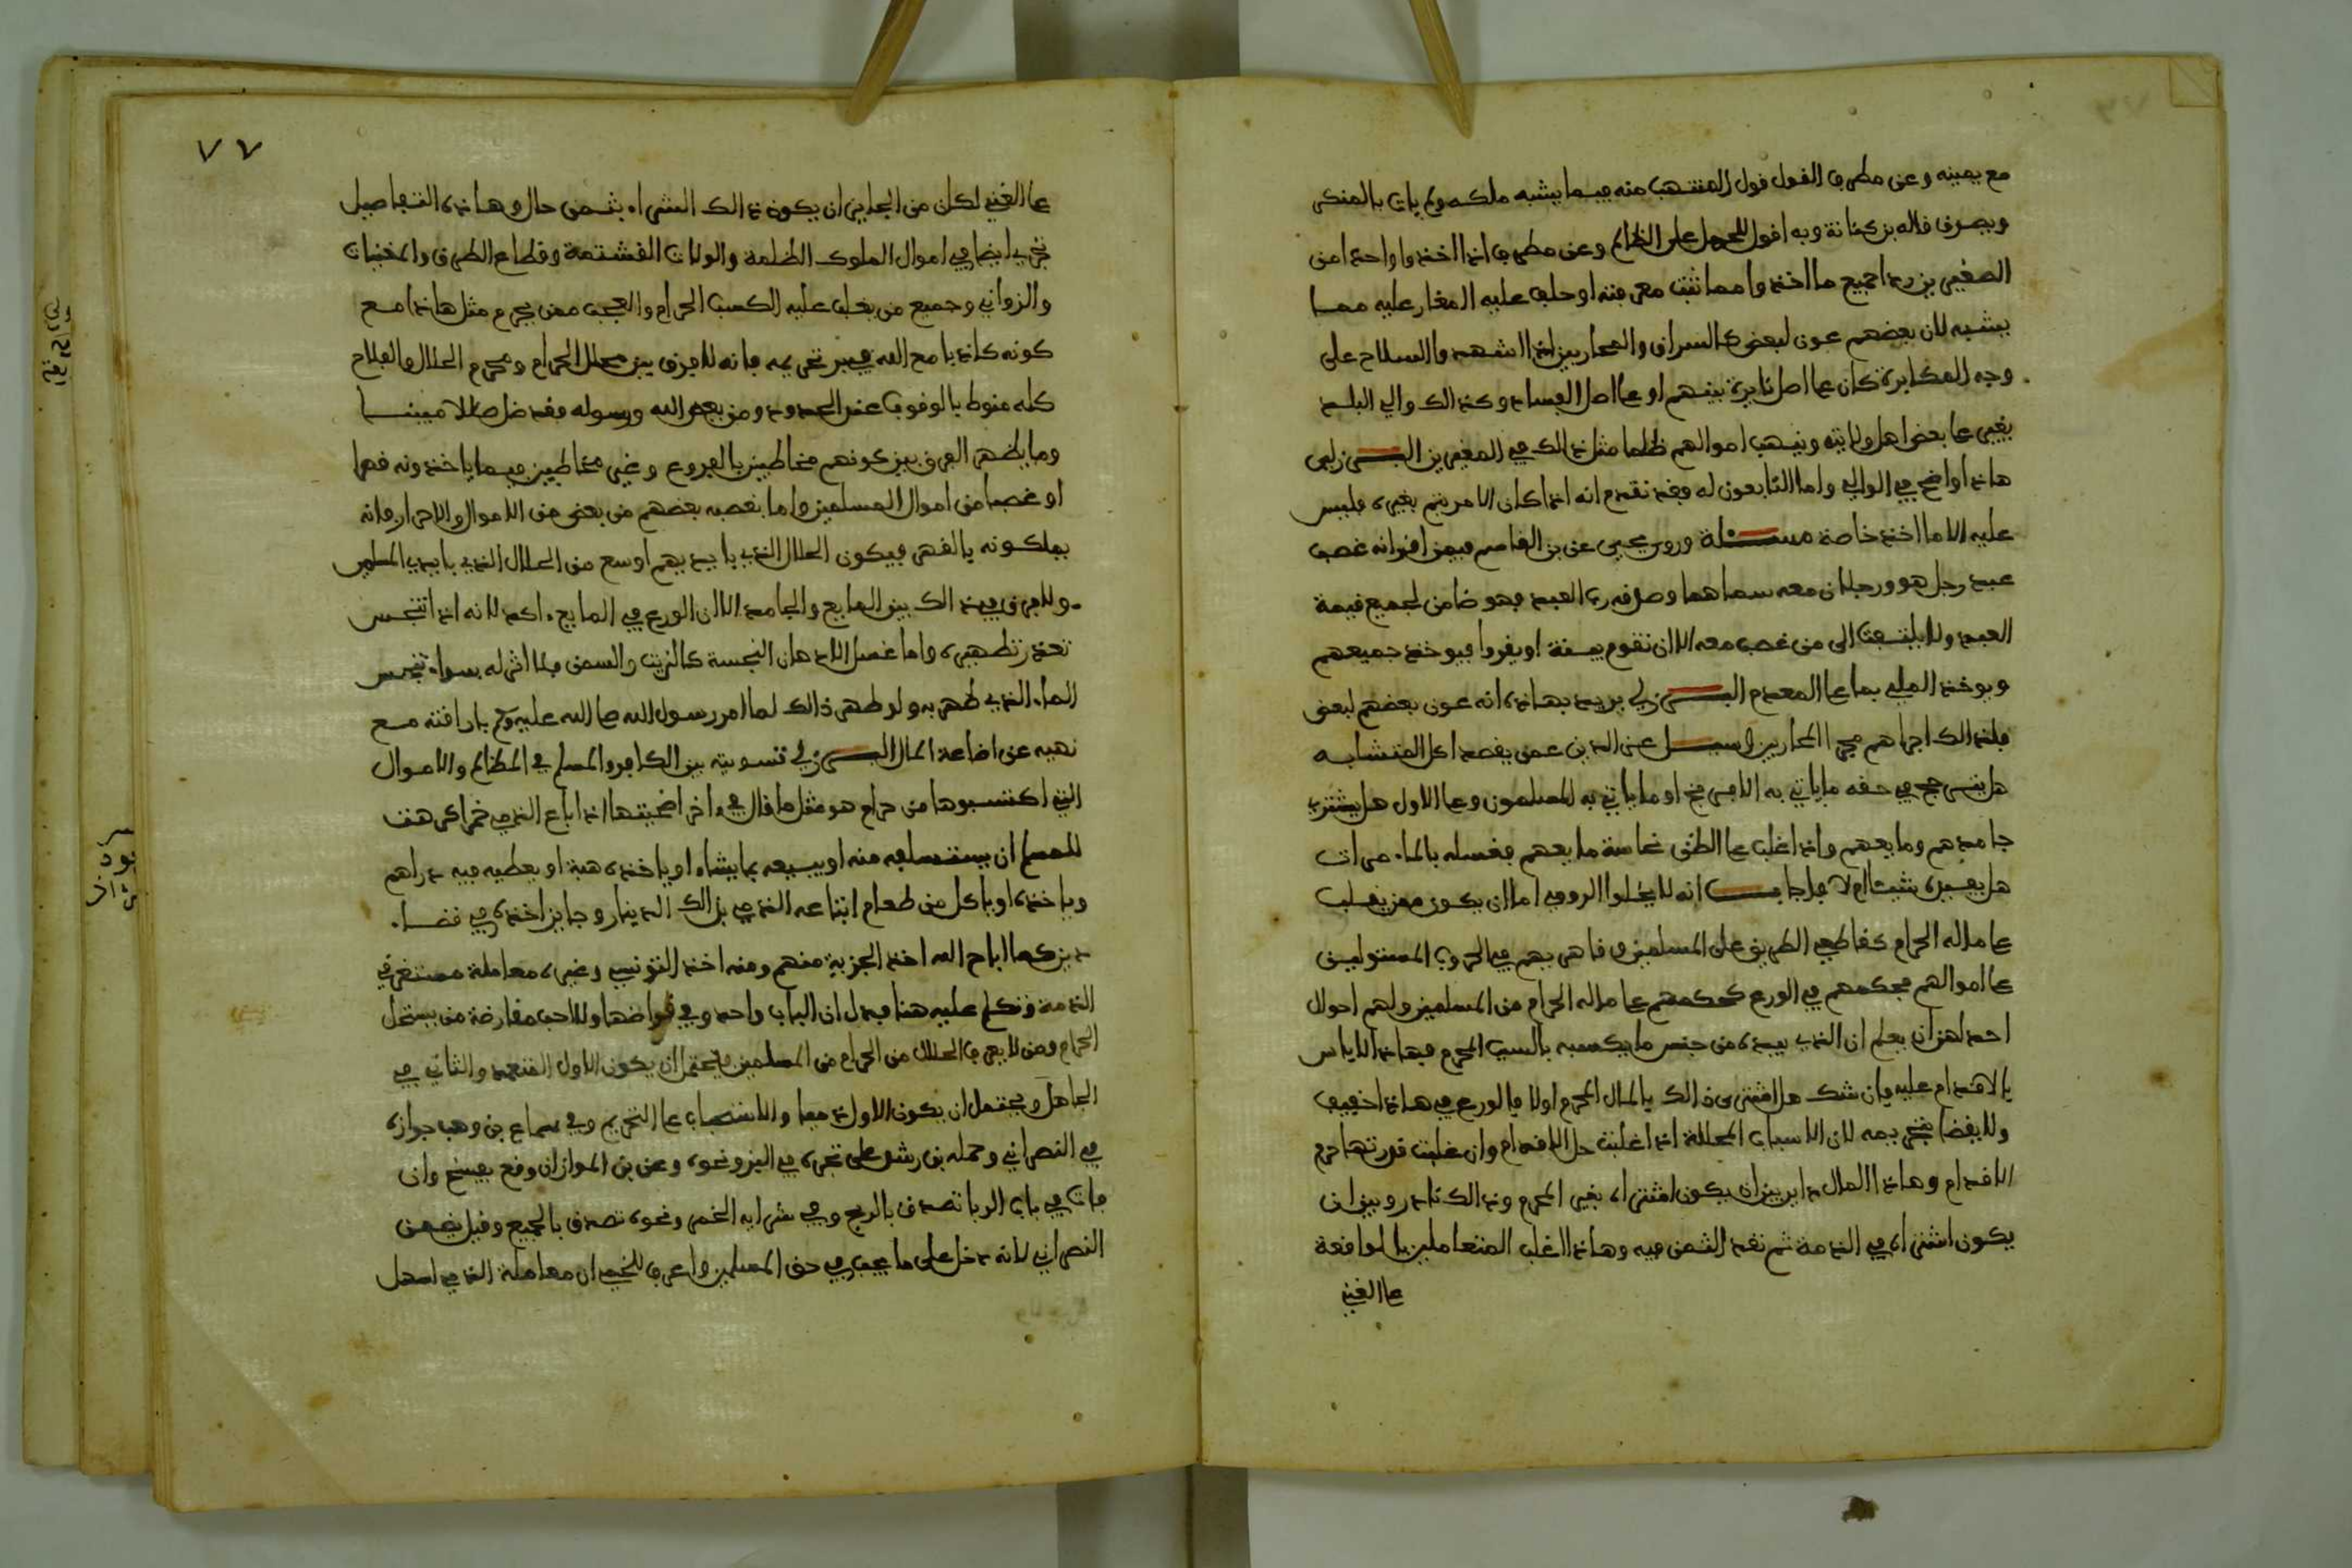 مع يمينه وعن مطرف القول قول المنتهب منه فيما يشبه ملكه ولم يات بالمنكر
ويصدق قاله بن كنانة وبه اقول للحمل على الظالم وعن مطرف اذا اخذوا واحدا من
المغيرين رد اجميع ما اخذوا مما ثبت معرفته او حلف عليه المغار عليه مما
يشبه لان بعضهم عون لبعض كالسراق والمحاربين اذا اشهدوا السلاح على
وجه المكابرة كان على اصل نايرة بينهم او على اصل الفساد وكذالك والي البلد
يغير على بعض اهل ولايته وينهب اموالهم ظلما مثل ذالك في المغيرين البرزلي
هاذا واضح في الوالي واما التابعون له فقد تقدم انه اذا كان الامر يتم بغيره فليس
عليه الا ما اخذ خاصة مسئلة وروى يحيى عن بن القاسم فيمن اقر انه غصب
عبد رجل هو ورجلان معه سماهما وصدقه رب العبد فهو ضامن لجميع قيمة
العبد ولا يلتفت الى من غصب معه الا ان تقوم بينة او يقروا فيوخذ جميعهم
ويوخذ الملي بما على المعدم البرزلي يريد بهاذه انه عون بعضهم لبعض
فلذالك اجراهم مجرا المحاربين وسئل عز الدين عمن يقصد اكل المتشابه
هل يترجح في حقه ما ياتي به الافرنج او ما ياتي به المسلمون وعلى الاول هل يشتري
جامدهم ومايعهم واذا غلب على الظن نجاسة مايعهم فغسله بالماء مرات
هل يفيده شيئا ام لا فاجاب انه لا يخلوا الرومي اما ان يكون ممن يغلب
على ماله الحرام كقاطعي الطريق على المسلمين وقاهريهم في الحروب المستولين
على اموالهم فحكمهم في الورع كحكمهم على ماله الحرام من المسلمين ولهم احوال
احداهن ان يعلم ان الذي بيده من جنس ما يكسبه بالسبب المحرم فهاذا لا باس
بالاقدام عليه وان شك هل اشترى ذالك بالمال المحرم اولا فالورع في هاذا خفيف
ولا يقضا بتحريمه لان الاسباب المحللة اذا غلبت حل الاقدام وان غلبت قدرتها حرم
الاقدام وهاذا المال داير بين ان يكون اشتراه بغير المحرم وذالك نادر وبين ان
يكون اشتراه في الذمة ثم نقد الثمن فيه وهاذا اغلب المتعاملين بالواقعة
على الغير
٧٧
على الغير لكان من الجايز ان يكون ذالك الشراء بثمن حال وهاذه التفاصيل
تجري ايضا في اموال الملوك الظلمة والولات الغشمة وقطاع الطرق والمغنيات
والزواني وجميع من يغلب عليه الكسب الحرام والعجب ممن يحرم مثل هاذا مع
كونه كاذبا مع الله في تحريمه فانه لا فرق بين محلل الحرام ومحرم الحلال والفلاح
كله منوط بالوقوف عند الحدود ومن يعص الله ورسوله فقد ضل ضلالا مبينا
وما يظهر الفرق بين كونهم مخاطبين بالفروع وغير مخاطبين فيما ياخذونه قهرا
او غصبا من اموال المسلمين واما يغصبه بعضهم من بعض من الاموال والاحرار فانه
يملكونه بالقهر فيكون الحلال الذي بايديهم اوسع من الحلال الذي بايدي المسلمين
ولا فرق في ذالك بين المايع والجامد الا ان الورع في المايع اكد لانه اذا تنجس
تعذر تطهيره واما غسل الادهان النجسة كالزيت والسمن فلا اثر له سواء تنجس
الماء الذي طهر به ولو طهر ذالك لما امر رسول الله صلى الله عليه وسلم باراقته مع
نهيه عن اضاعة المال البرزلي تسويته بين الكافر والمسلم في المظالم والاموال
التي اكتسبوها من حرام هو مثل ما قال في اخر اضحيتها اذا باع الذمي خمرا كرهت
للمسلم ان يستسلفه منه او يبيعه بما يشاء او ياخذه هبة او يعطيه فيه دراهم
وياخذه او ياكل من طعام ابتاعه الذمي بذالك الدينار وجايز اخذه في قضاء
دين كما اباح الله اخذ الجزية منهم ومنه اخذ التونسي وغيره معاملة مستغرق
الذمة وتكلم عليه هنا فيدل ان الباب واحد وفي قراضها ولا احب مقارضة من يستحل
الحرام ومن لا يعرف الحلال من الحرام من المسلمين فيحتمل ان يكون الاول المتعمد والثاني في
الجاهل ويحتمل ان يكون الاول ذميا والاستحباب على التحريم وفي سماع بن وهب جوازه
في النصراني وحمله بن رشد على تجره في البز ونحوه وعن بن المواز ان وقع يفسخ وان
فات في باب الربا تصدق بالربح وفي شرايه الخمر ونحوه تصدق بالجميع وقيل يضمن
النصراني لانه دخل على ما يجب في حق المسلمين واعرف للخمي ان معاملة الذمي اسهل